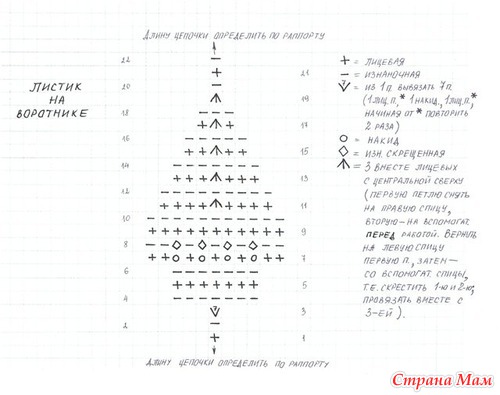 ДЛИНУ ЦЕПОЧКИ ОПРЕДЕЛИТЬ ПО РАППОРТУ
ЛИСТИК
НА
ВОРОТНИКЕ
22
21
20
19
18
17
16
15
14
13
12
11
10
9
8
7
6
5
4
3
2
1
+ = ЛИЦЕВАЯ
− = ИЗНАНОЧНАЯ
7 = ИЗ 1 П. ВЫВЯЗАТЬ 7 П.
(1 ЛИЦ. П., * 1 НАКИД., 1 ЛИЦ. П., *
НАЧИНАЯ ОТ * ПОВТОРИТЬ
2 РАЗА)
= НАКИД
= ИЗН. СКРЕЩЕННАЯ
= 3 ВМЕСТЕ ЛИЦЕВЫХ
С ЦЕНТРАЛЬНОЙ СВЕРХУ
(ПЕРВУЮ ПЕТЛЮ СНЯТЬ
НА ПРАВУЮ СПИЦУ,
ВТОРУЮ – НА ВСПОМОГАТ.
ПЕРЕД РАБОТОЙ. ВЕРНУТЬ
НА ЛЕВУЮ СПИЦУ
ПЕРВУЮ П., ЗАТЕМ –
СО ВСПОМОГАТ. СПИЦЫ,
Т.Е. СКРЕСТИТЬ 1-Ю И 2-Ю,
ПРОВЯЗАТЬ ВМЕСТЕ С
3-ЕЙ).
7
ДЛИНУ ЦЕПОЧКИ ОПРЕДЕЛИТЬ ПО РАППОРТУ
Страна Мам